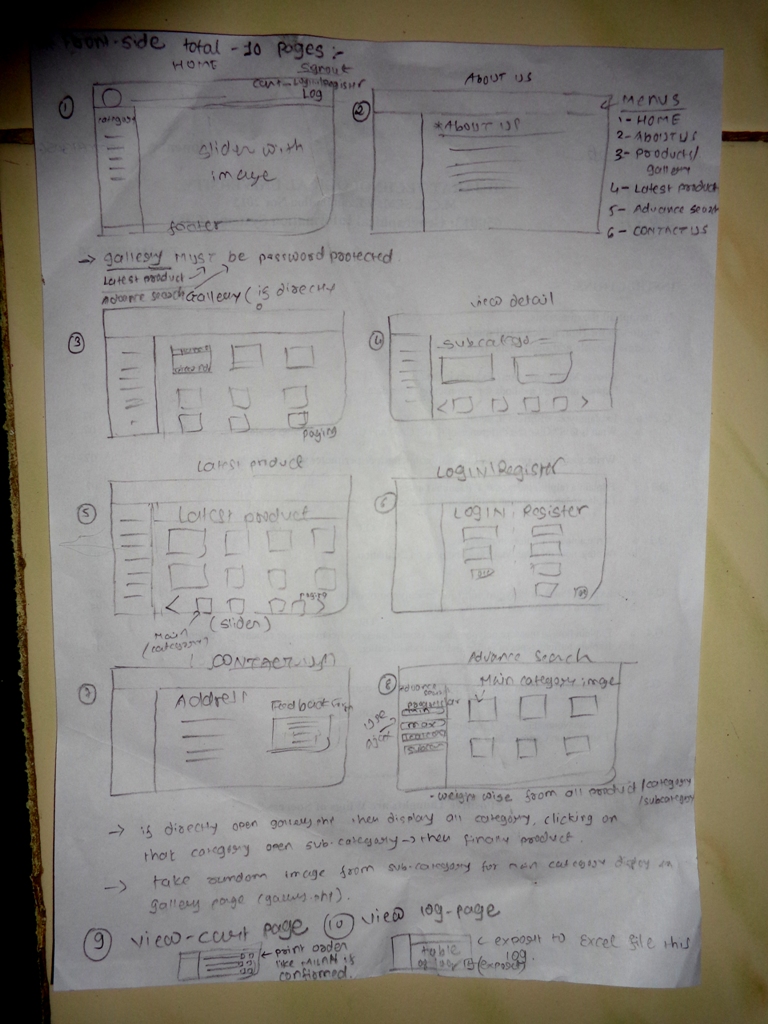 Front-side total - 10 pages :-
HOME
Log
①
category
slider with
image
footer
ABOUT US
②
* ABOUT US
MENUS
1 - HOME
2 - ABOUT US
3 - Products/
gallery
4 - Latest product
5 - Advance search
6 - CONTACT US
→ gallery MUST be password protected.
Latest product
Advance search
Gallery (is directly
③
paging
view detail
④
Latest product
⑤
Latest product
paging
Main
(category)
(slider)
LOGIN/Register
⑥
LOGIN
Register
CONTACT US
⑦
Address
Advance search
⑧
Main category image
max
- weight wise from all product/category
/subcategory
→ if directly open gallery.php then display all category, clicking on
that category open sub-category → then finally product.
→ take random image from sub-category for main category display in
gallery page (gallery.php).
⑨ view-cart page
← print order
like is
confirmed.
⑩ view log-page
table
of log
(export)
← export to Excel file this
log.